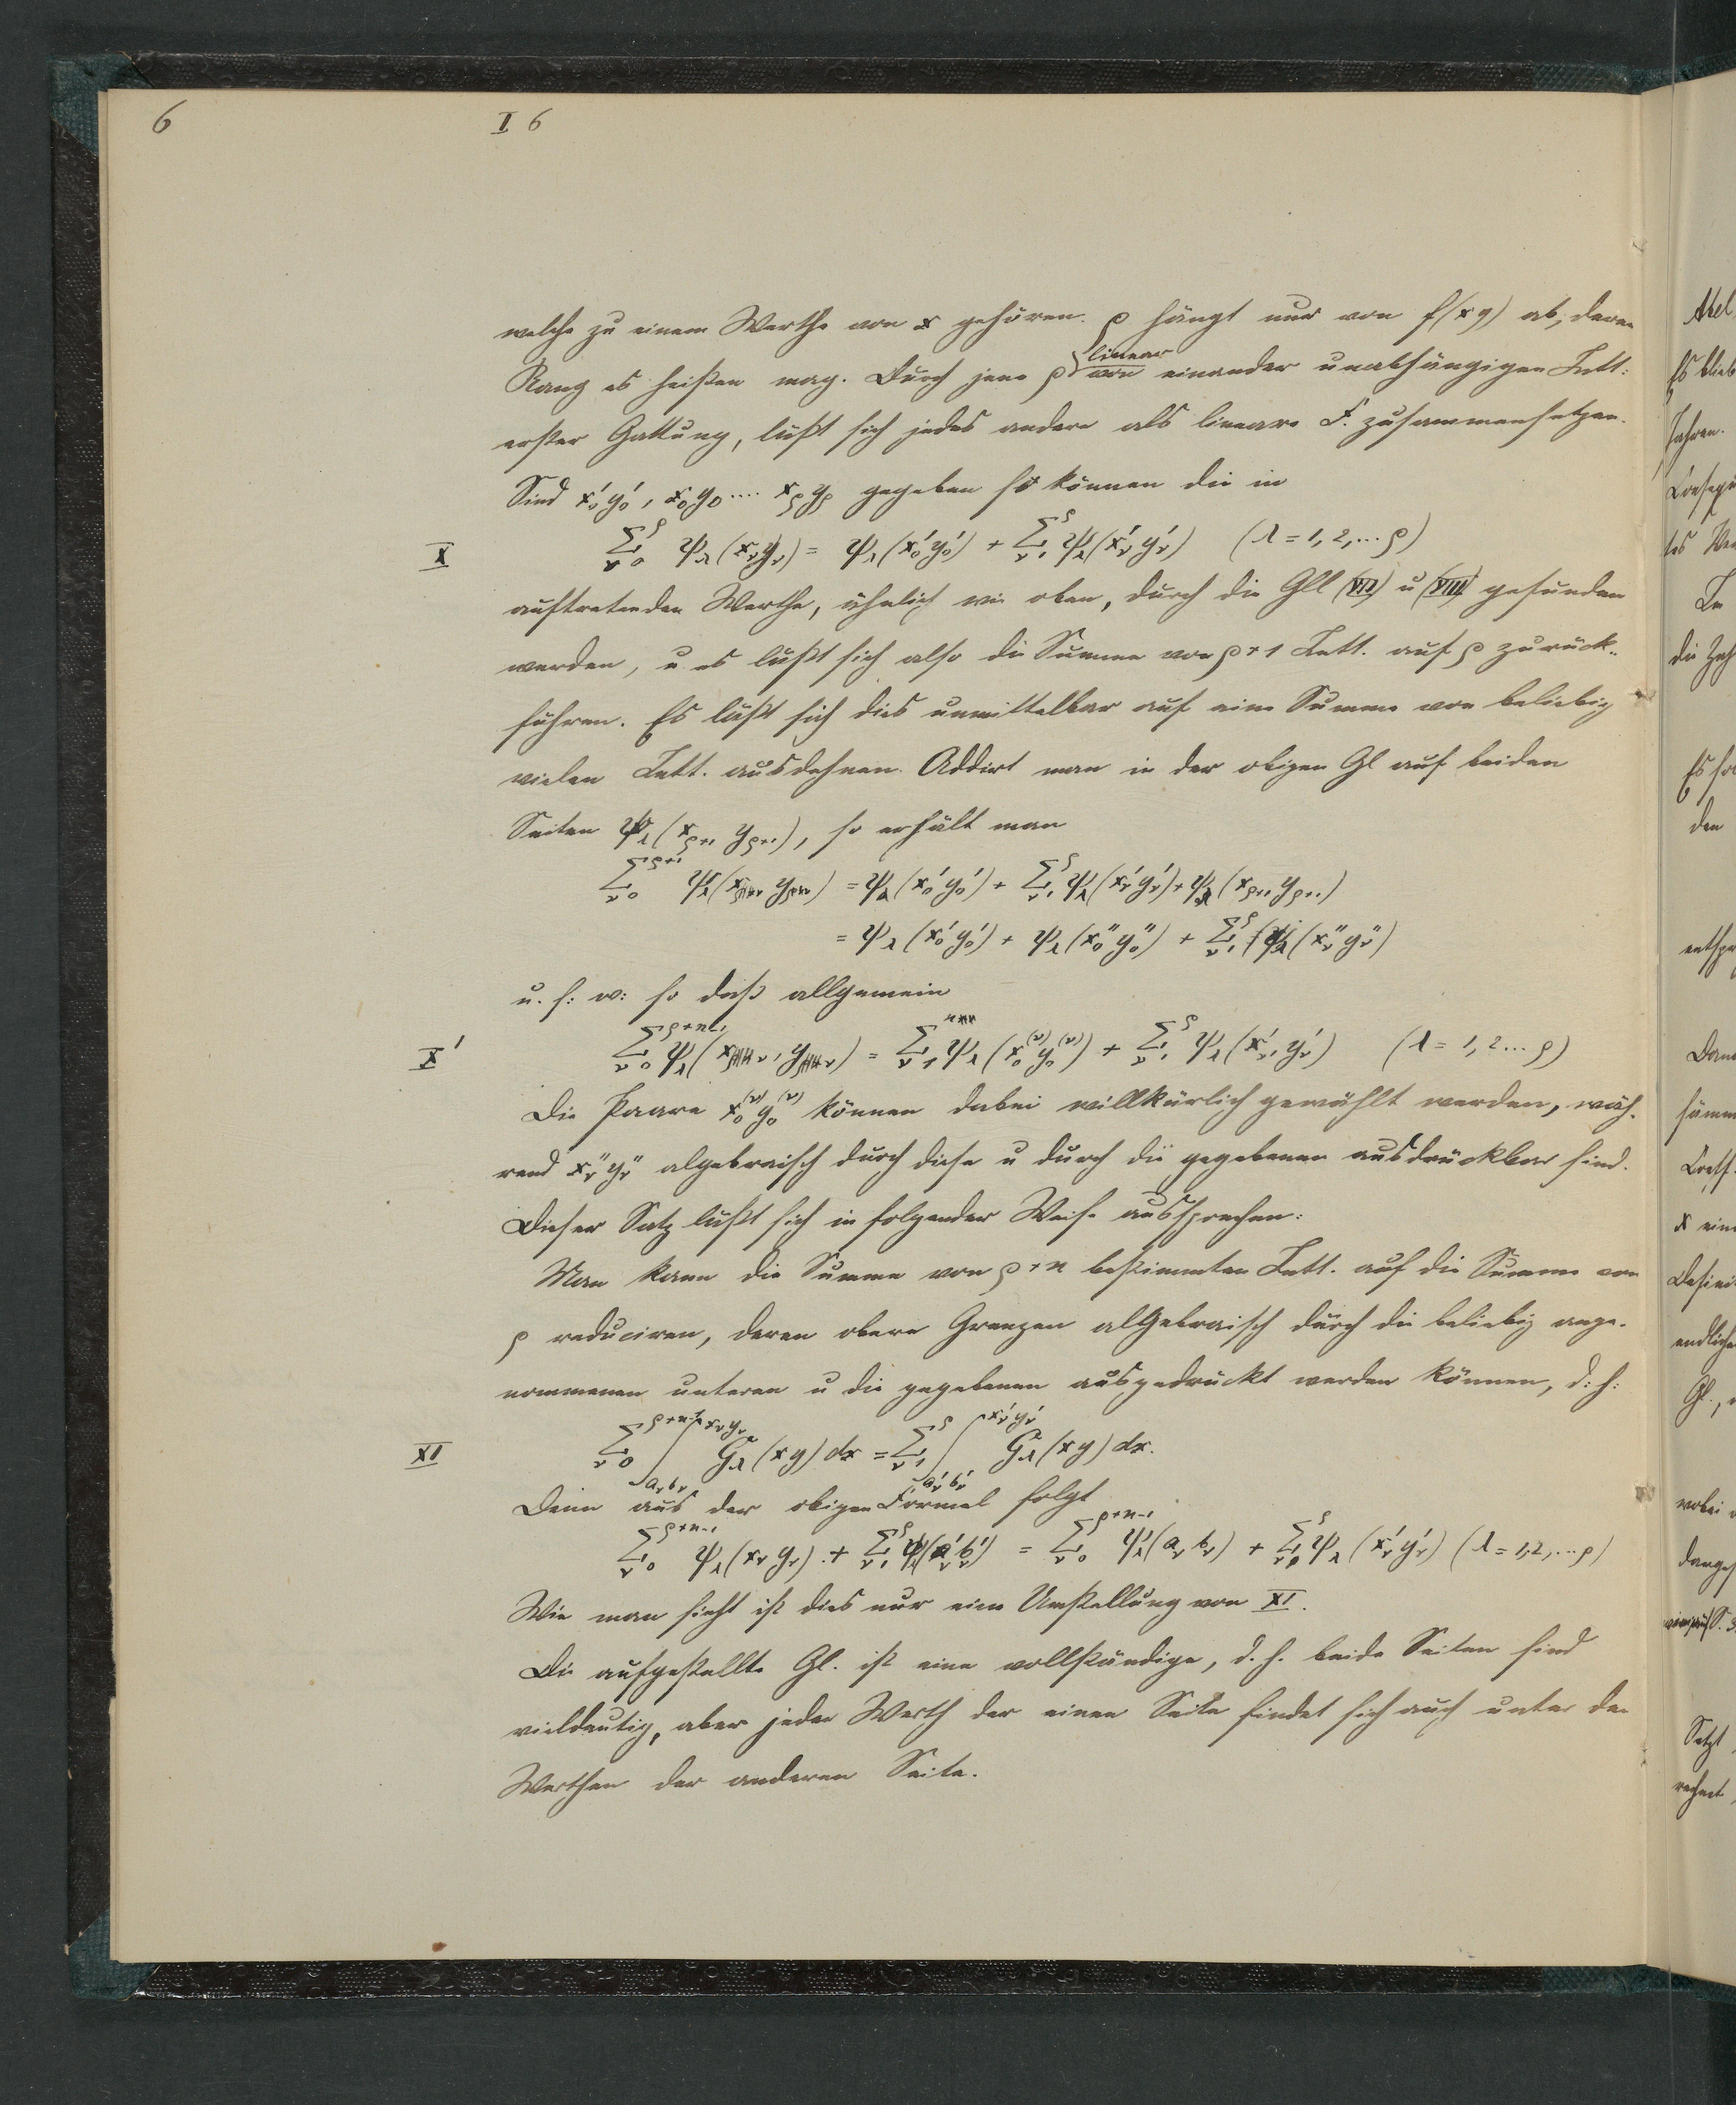 6
I 6
welche zu einem Werthe von x gehören. ρ hängt nur von f(xy) ab, deren
Rang es heißen mag. Durch jene ρ linear von einander unabhängigen Intt:
erster Gattung, läßt sich jedes andere als lineare F. zusammensetzen.
Sind x₀'y₀', x₀y₀ .... x_ρ y_ρ gegeben so können die in
X Σ_{ν 0}^{ρ} ψ_λ(x_ν y_ν) = ψ_λ(x₀'y₀') + Σ_{ν 1}^{ρ} ψ_λ(x_ν'y_ν') (λ = 1, 2, ... ρ)
auftretenden Werthe, ähnlich wie oben, durch die Gll (VII) u (VIII) gefunden
werden, u es läßt sich also die Summe von ρ+1 Intt. auf ρ zurück-
führen. Es läßt sich dies unmittelbar auf eine Summe von beliebig
vielen Intt. ausdehnen. Addirt man in der obigen Gl auf beiden
Seiten ψ_λ(x_{ρ+1} y_{ρ+1}), so erhält man
Σ_{ν 0}^{ρ+1} ψ_λ(x_ν y_ν) = ψ_λ(x₀'y₀') + Σ_{ν 1}^{ρ} ψ_λ(x_ν'y_ν') + ψ_λ(x_{ρ+1} y_{ρ+1})
= ψ_λ(x₀'y₀') + ψ_λ(x₀''y₀'') + Σ_{ν 1}^{ρ} ψ_λ(x_ν''y_ν'')
u. s: w: so daß allgemein
X' Σ_{ν 0}^{ρ+n-1} ψ_λ(x_ν, y_ν) = Σ_{ν 1} ψ_λ(x₀^{(ν)} y₀^{(ν)}) + Σ_{ν 1}^{ρ} ψ_λ(x_ν', y_ν') (λ = 1, 2 ... ρ)
Die Paare x₀^{(ν)} y₀^{(ν)} können dabei willkürlich gewählt werden, wäh-
rend x_ν''y_ν'' algebraisch durch diese u durch die gegebenen ausdrückbar sind.
Dieser Satz läßt sich in folgender Weise aussprechen:
Man kann die Summe von ρ+n bestimmten Intt. auf die Summe von
ρ reduciren, deren obere Grenzen algebraisch durch die beliebig ange-
nommenen unteren u die gegebenen ausgedrückt werden können, d: h:
XI Σ_{ν 0}^{ρ+n-1} ∫_{a_ν b_ν}^{x_ν y_ν} G_λ(xy) dx = Σ_{ν 1}^{ρ} ∫_{a_ν' b_ν'}^{x_ν' y_ν'} G_λ(xy) dx.
Denn aus der obigen Formel folgt
Σ_{ν 0}^{ρ+n-1} ψ_λ(x_ν y_ν) + Σ_{ν 1}^{ρ} ψ_λ(a_ν' b_ν') = Σ_{ν 0}^{ρ+n-1} ψ_λ(a_ν b_ν) + Σ_{ν}^{ρ} ψ_λ(x_ν'y_ν') (λ = 1, 2, ... ρ)
Wie man sieht ist dies nur eine Umstellung von XI.
Die aufgestellte Gl. ist eine vollständige, d. h. beide Seiten sind
vieldeutig, aber jeder Werth der einen Seite findet sich auch unter den
Werthen der anderen Seite.